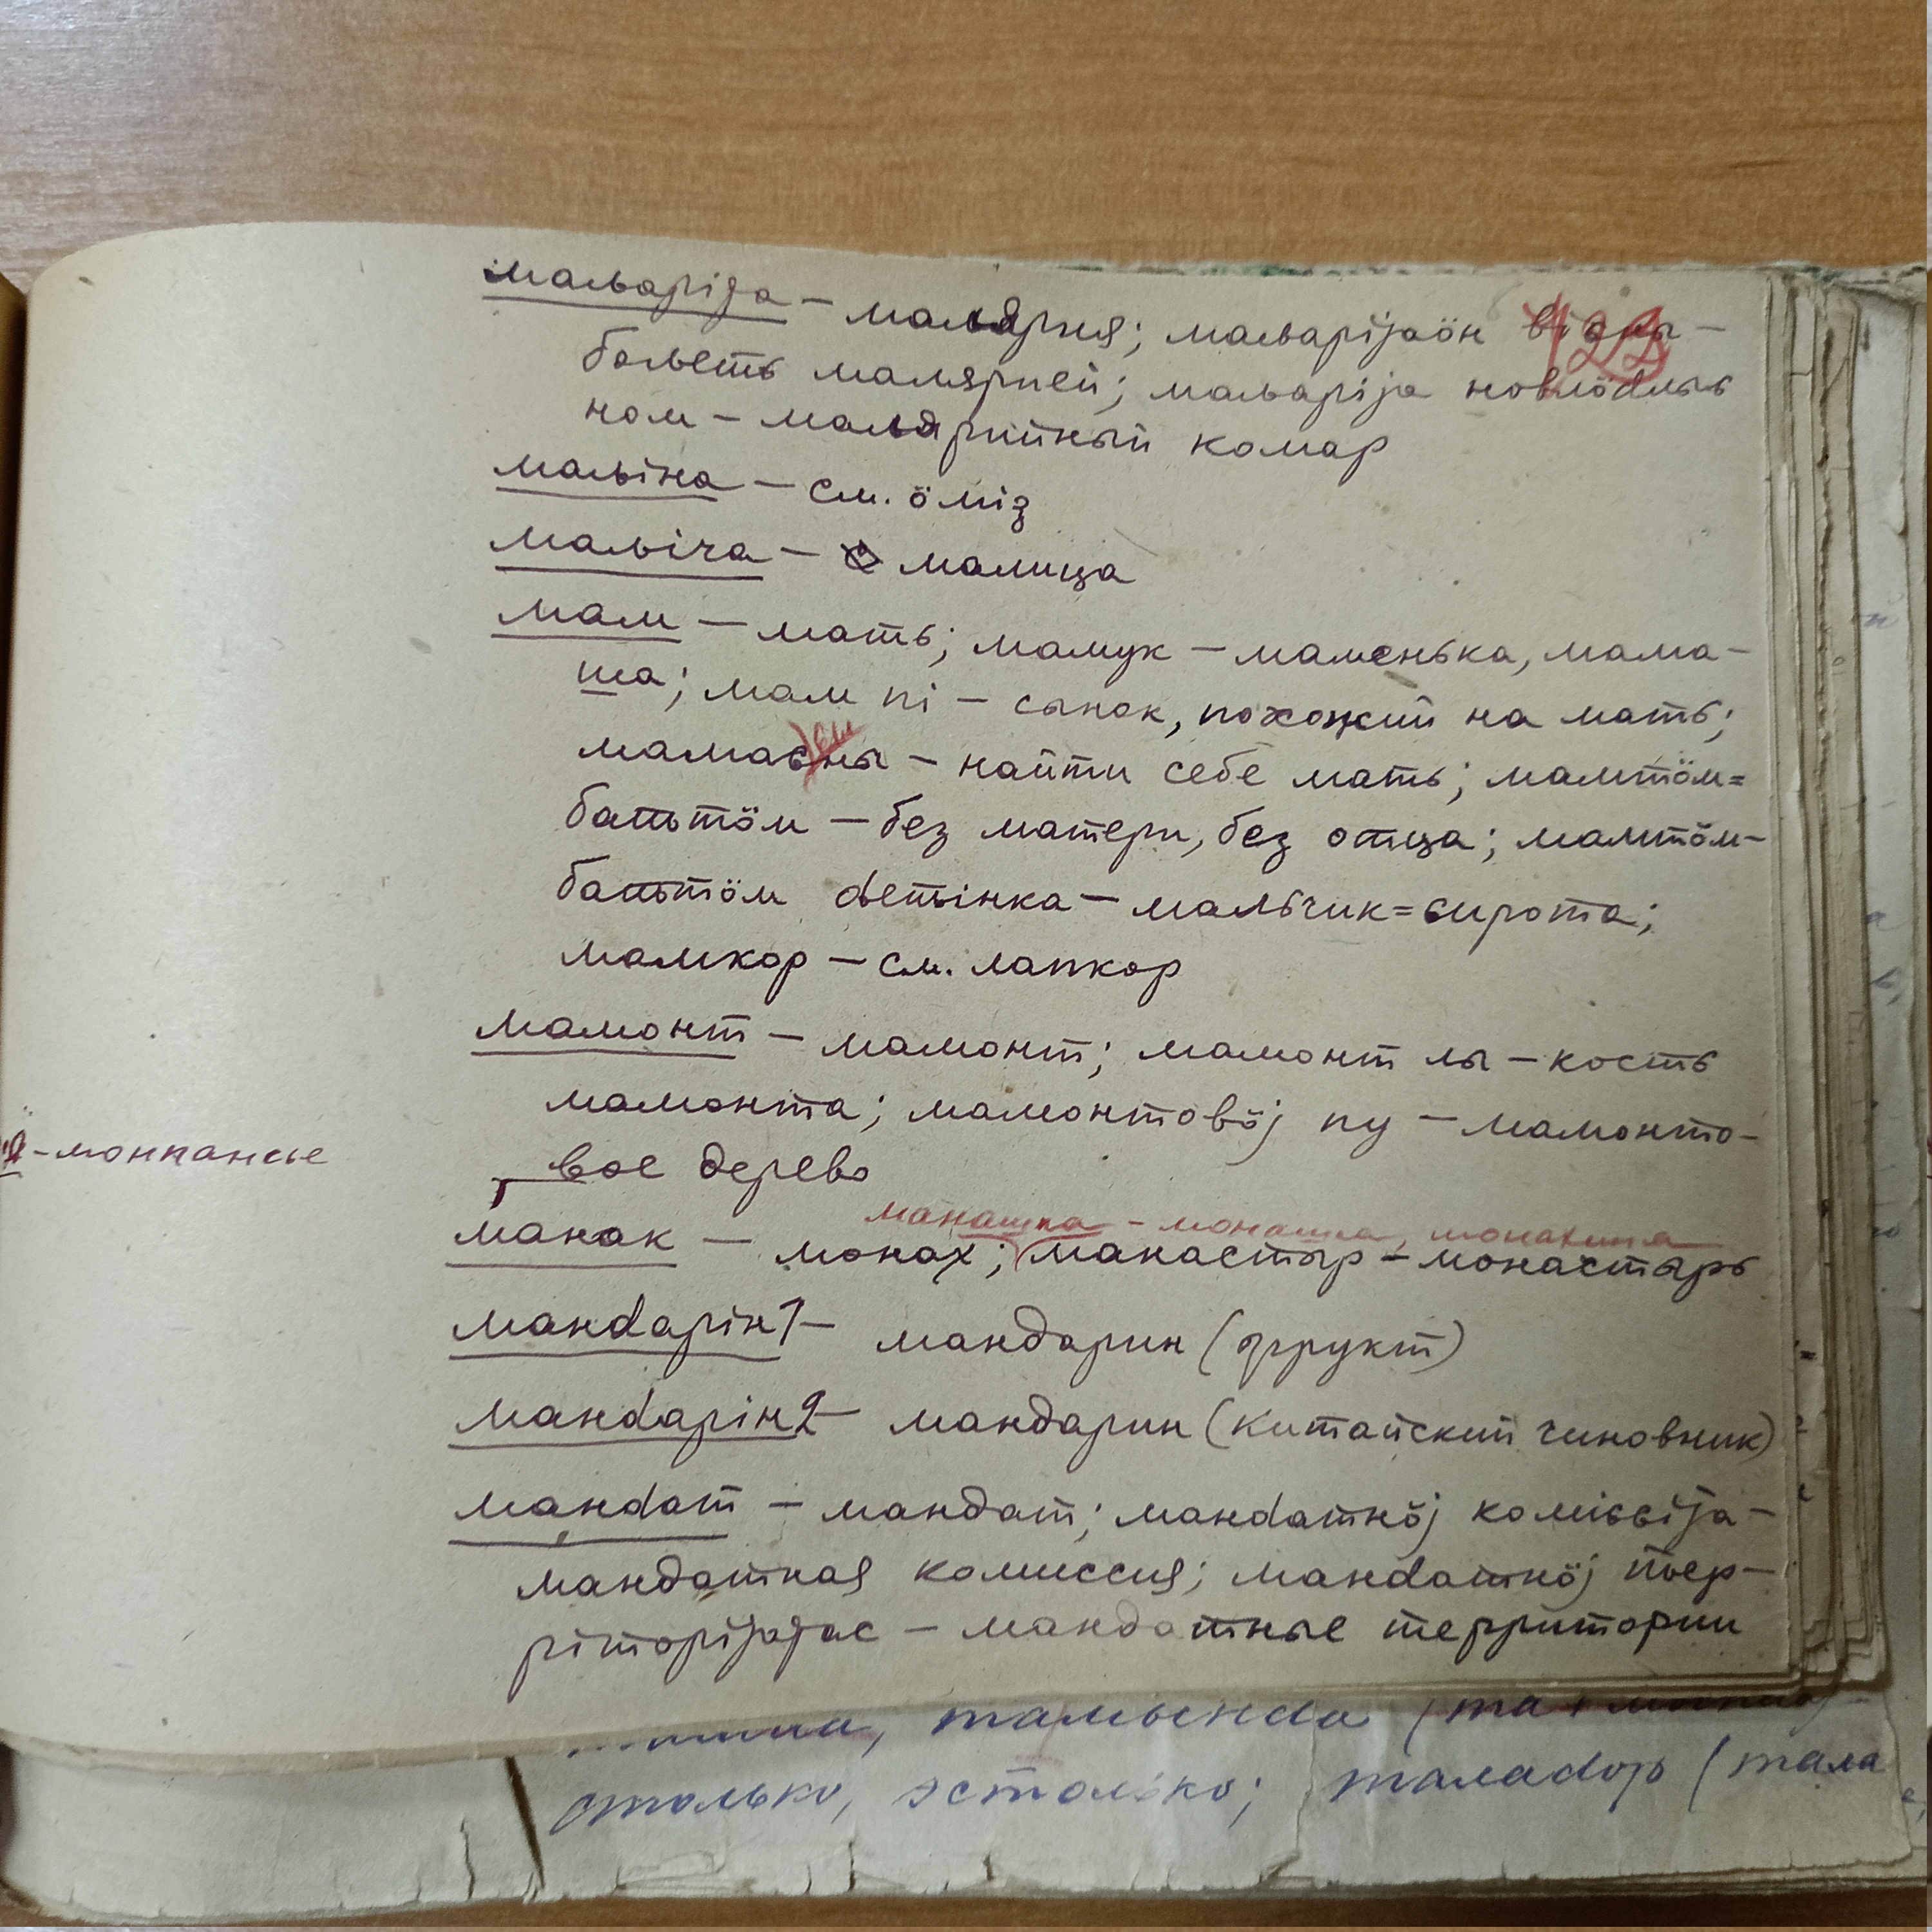 423
маларija – малярия; маларijaöн висны –
болеть малярией; маларija новлöдлыс
ном – малярийный комар
маліна – см. öміӡ
маліча – малица
мам – мать; мамук – маменька, мама-
ша; мам пі – сынок, похожий на мать;
мамаӧны – найти себе мать; мамтöм=
баттöм – без матери, без отца; мамтöм-
баттöм dетінка – мальчик=сирота;
мамкор – см. лапкор
мамонт – мамонт; мамонт лы – кость
мамонта; мамонтовöj пу – мамонто-
вое дерево
-монпансье
манашка – монашка, монахиня
манак – монах; манастыр – монастырь
манdарін 1 – мандарин (фрукт)
манdарін 2 – мандарин (китайский чиновник)
манdат – мандат; манdатнöj комісsija –
мандатная комиссия; манdатнöj тер-
ріторijajас – мандатные территории
столько, эстолько; (тала